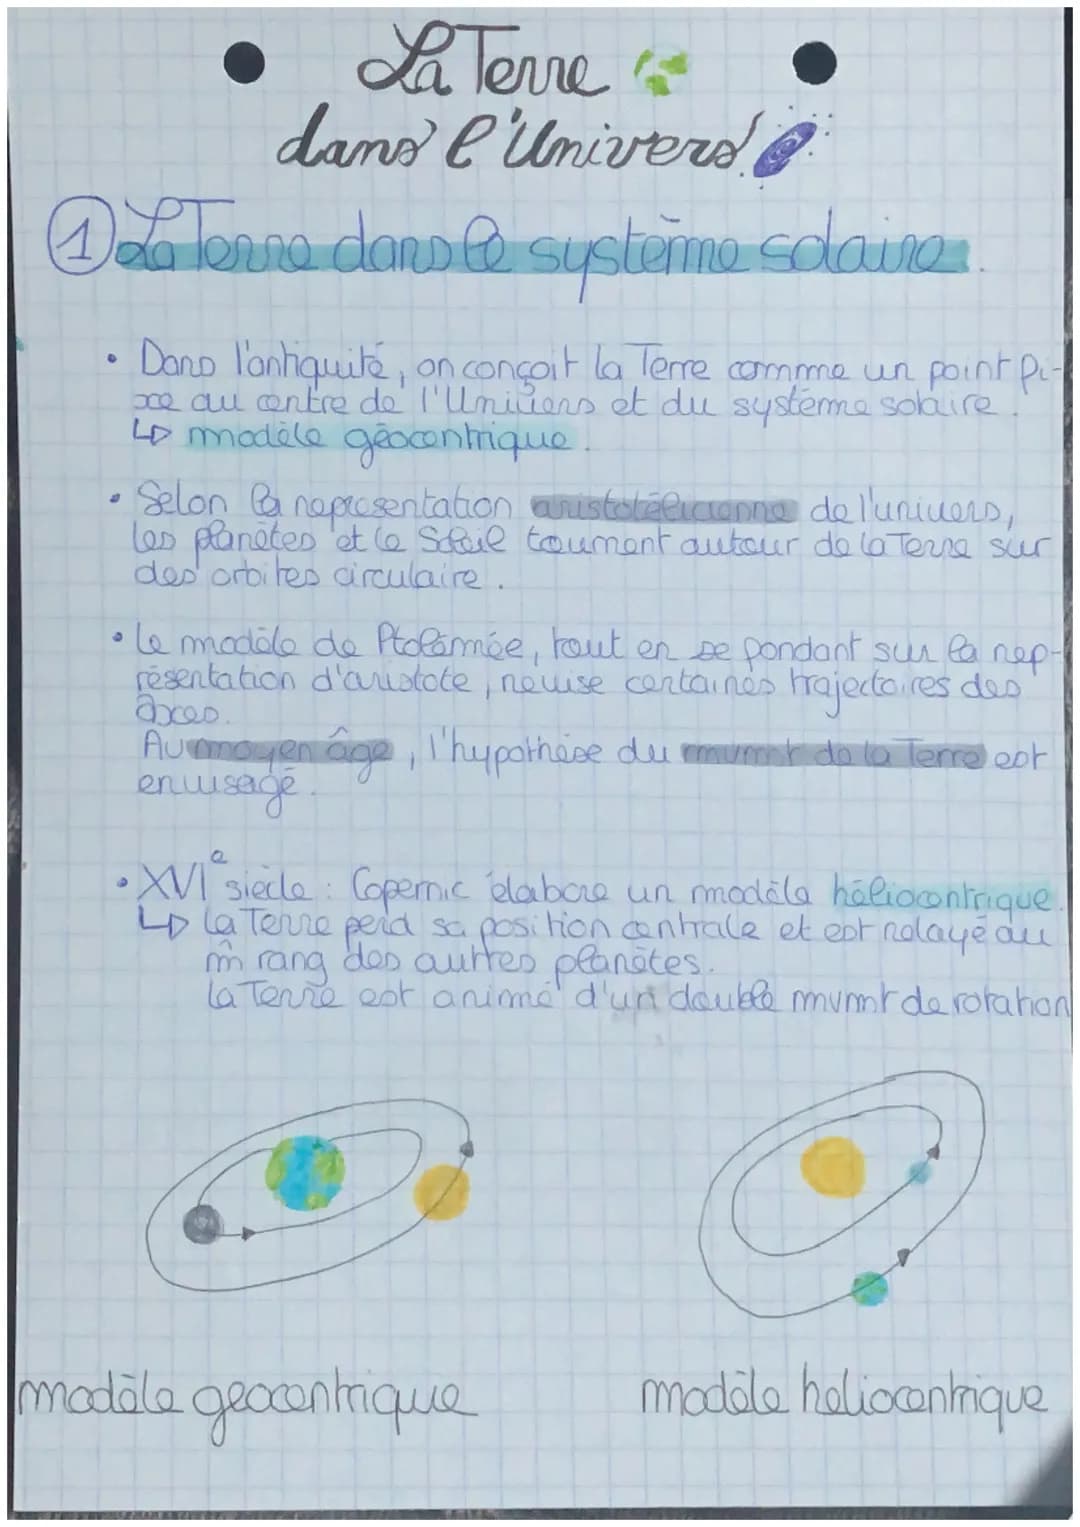 La Terre
dans l'Univers
1 La Terre dans le système solaire.
• Dans l'antiquité, on conçoit la Terre comme un point fi-
xe au centre de l'Univers et du système solaire.
↳ modèle géocentrique.
• Selon la representation aristotélicienne de l'univers,
les planètes et le Soleil tournent autour de la Terre sur
des orbites circulaire.
• Le modèle de Ptolémée, tout en se pondant sur la rep-
résentation d'aristote, revise certaines trajectoires des
axes.
Au moyen âge, l'hypothèse du mvmnt de la Terre est
envisagé.
• XVIe siècle : Copernic élabore un modèle héliocentrique.
↳ La Terre perd sa position centrale et est relayé au
m̂ rang des autres planètes.
La Terre est animé d'un double mvmnt de rotation
modèle geocentrique
modèle heliocentrique